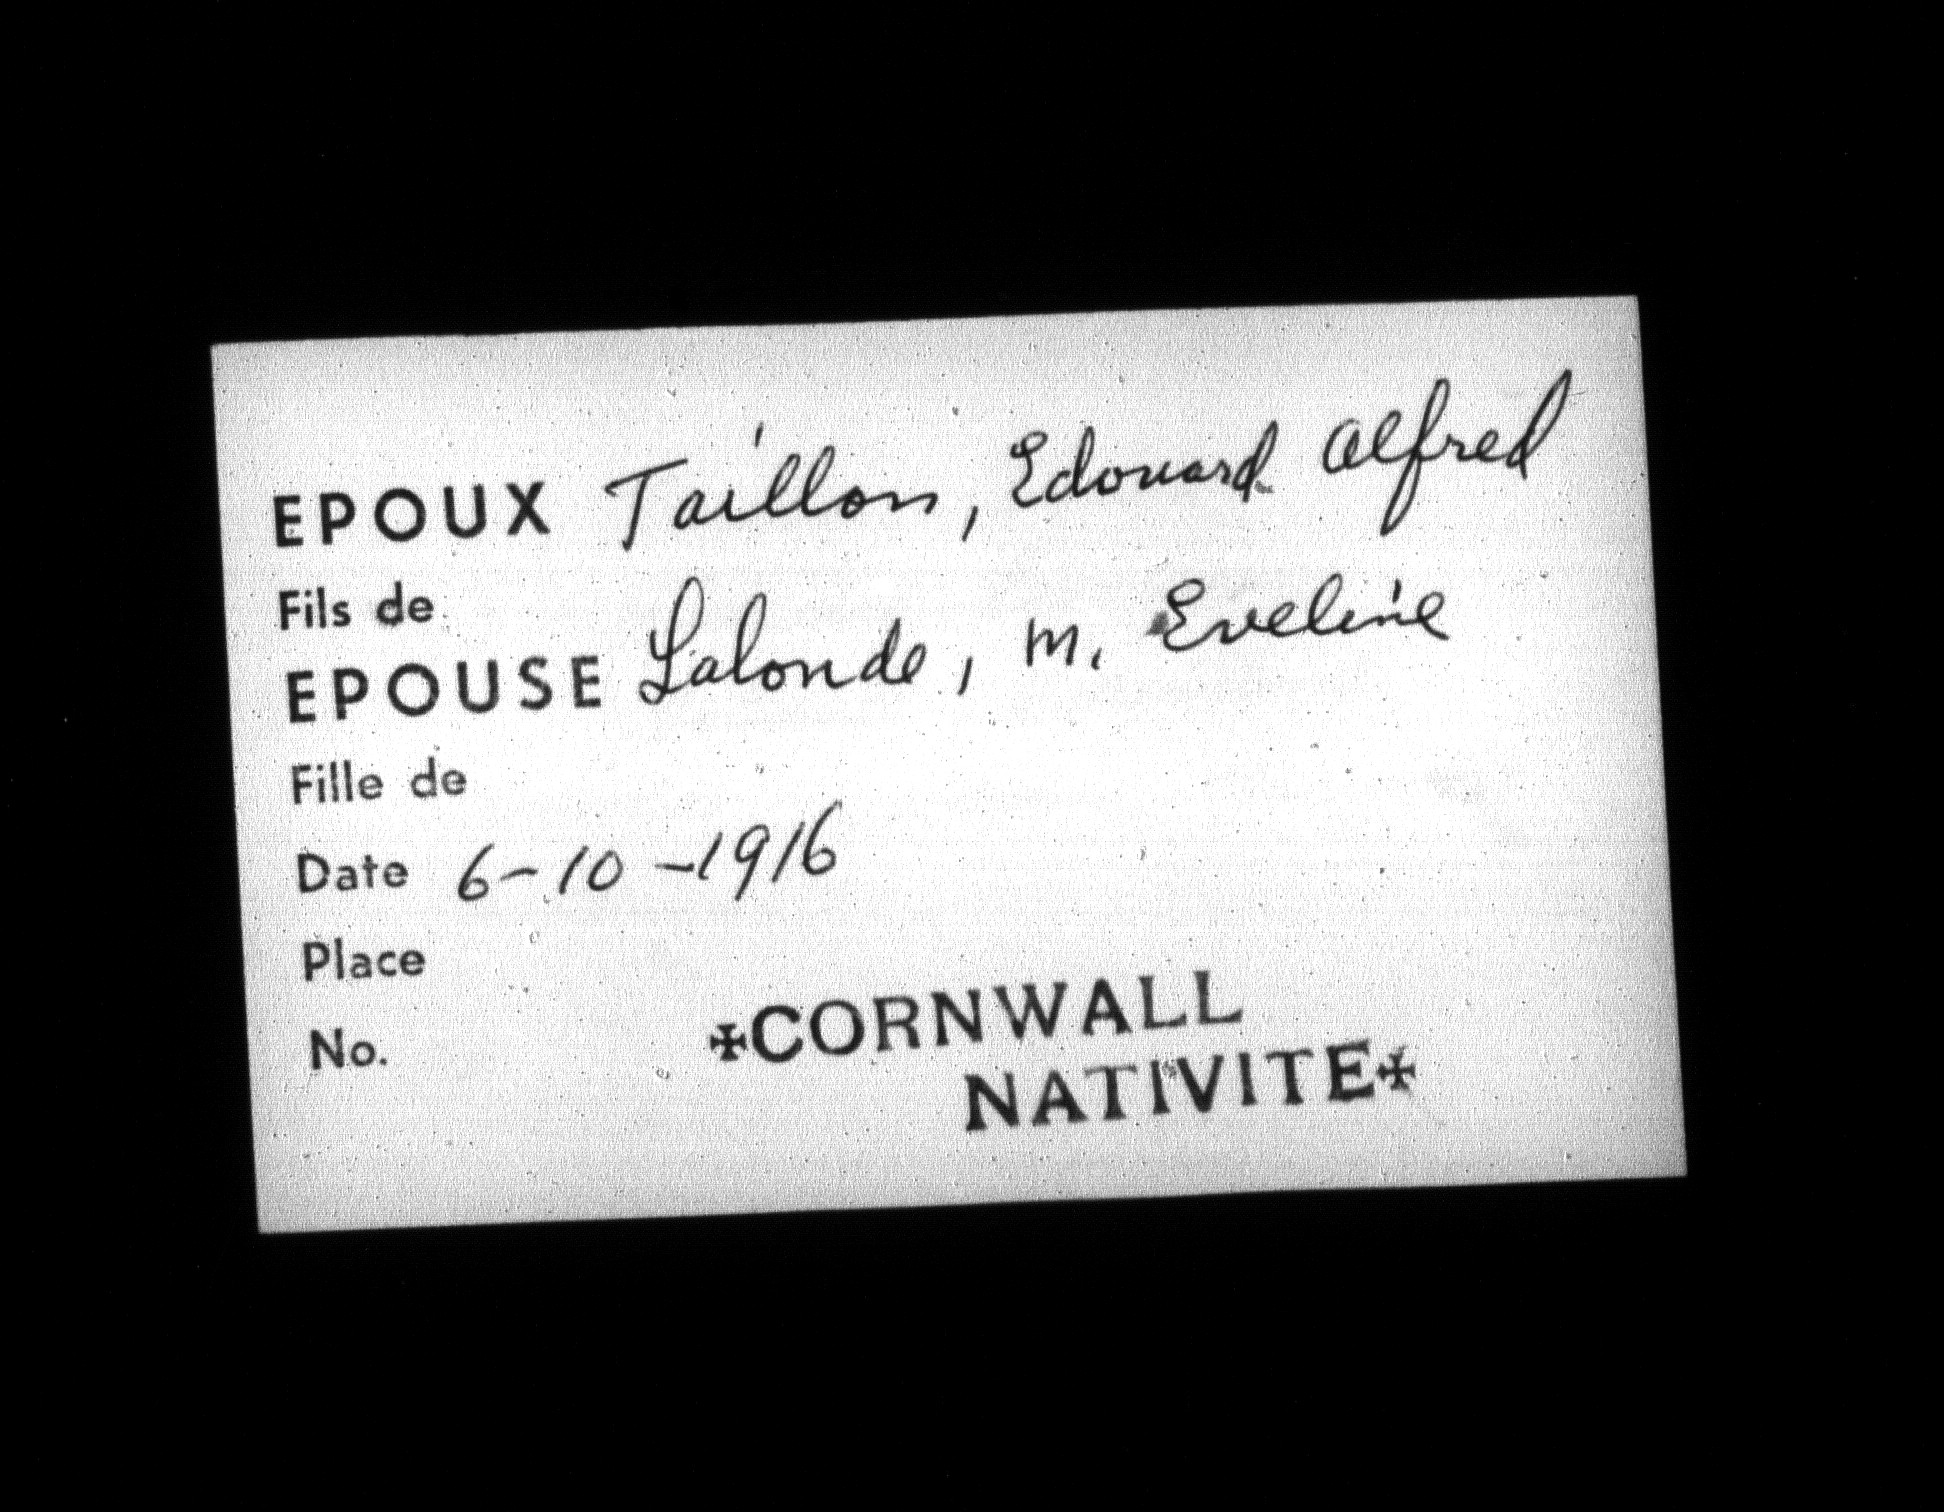 EPOUX Taillon, Edouard Alfred
Fils de
EPOUSE Lalonde, M. Eveline
Fille de
Date 6-10-1916
Place
No.
✠CORNWALL
NATIVITE✠